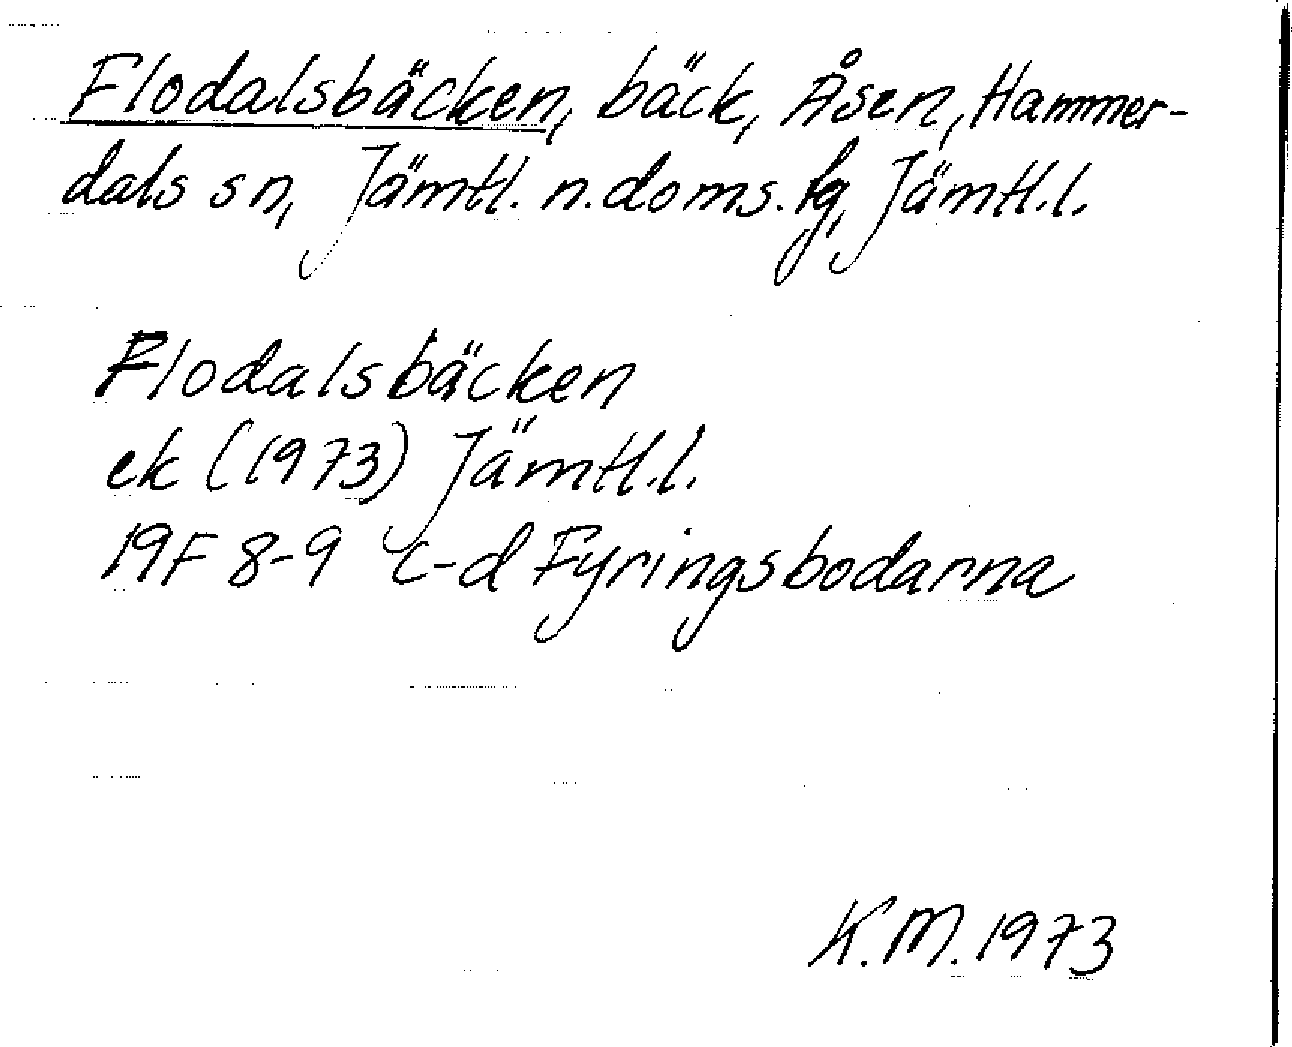 Flodalsbäcken, bäck, Åsen, Hammer-
dals sn, Jämtl. n. doms. fg, Jämtl.l.
Flodalsbäcken
ek (1973) Jämtl.l.
19F 8-9 c-d Fyringsbodarna
K.M. 1973